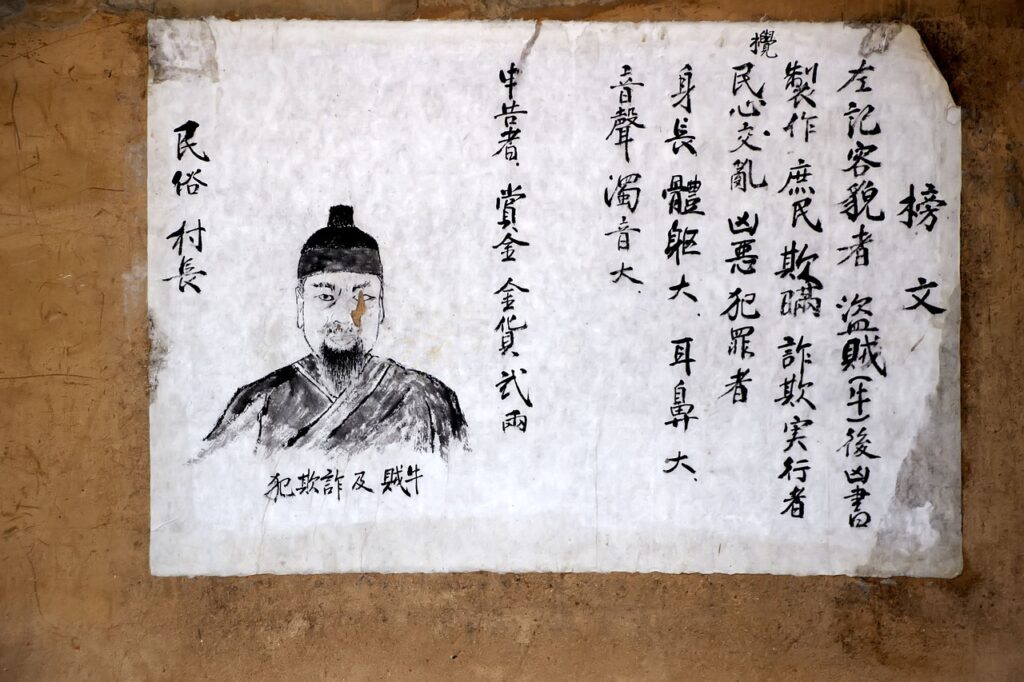 榜文
左記容貌者 盜賊(牛)後凶書
製作 庶民 欺瞞 詐欺実行者
攪
民心交亂 凶悪犯罪者
身長 體軀大、耳鼻大、
音聲 濁音大、
申告者、賞金 金貨 弐兩
犯欺詐及賊牛
民俗村長